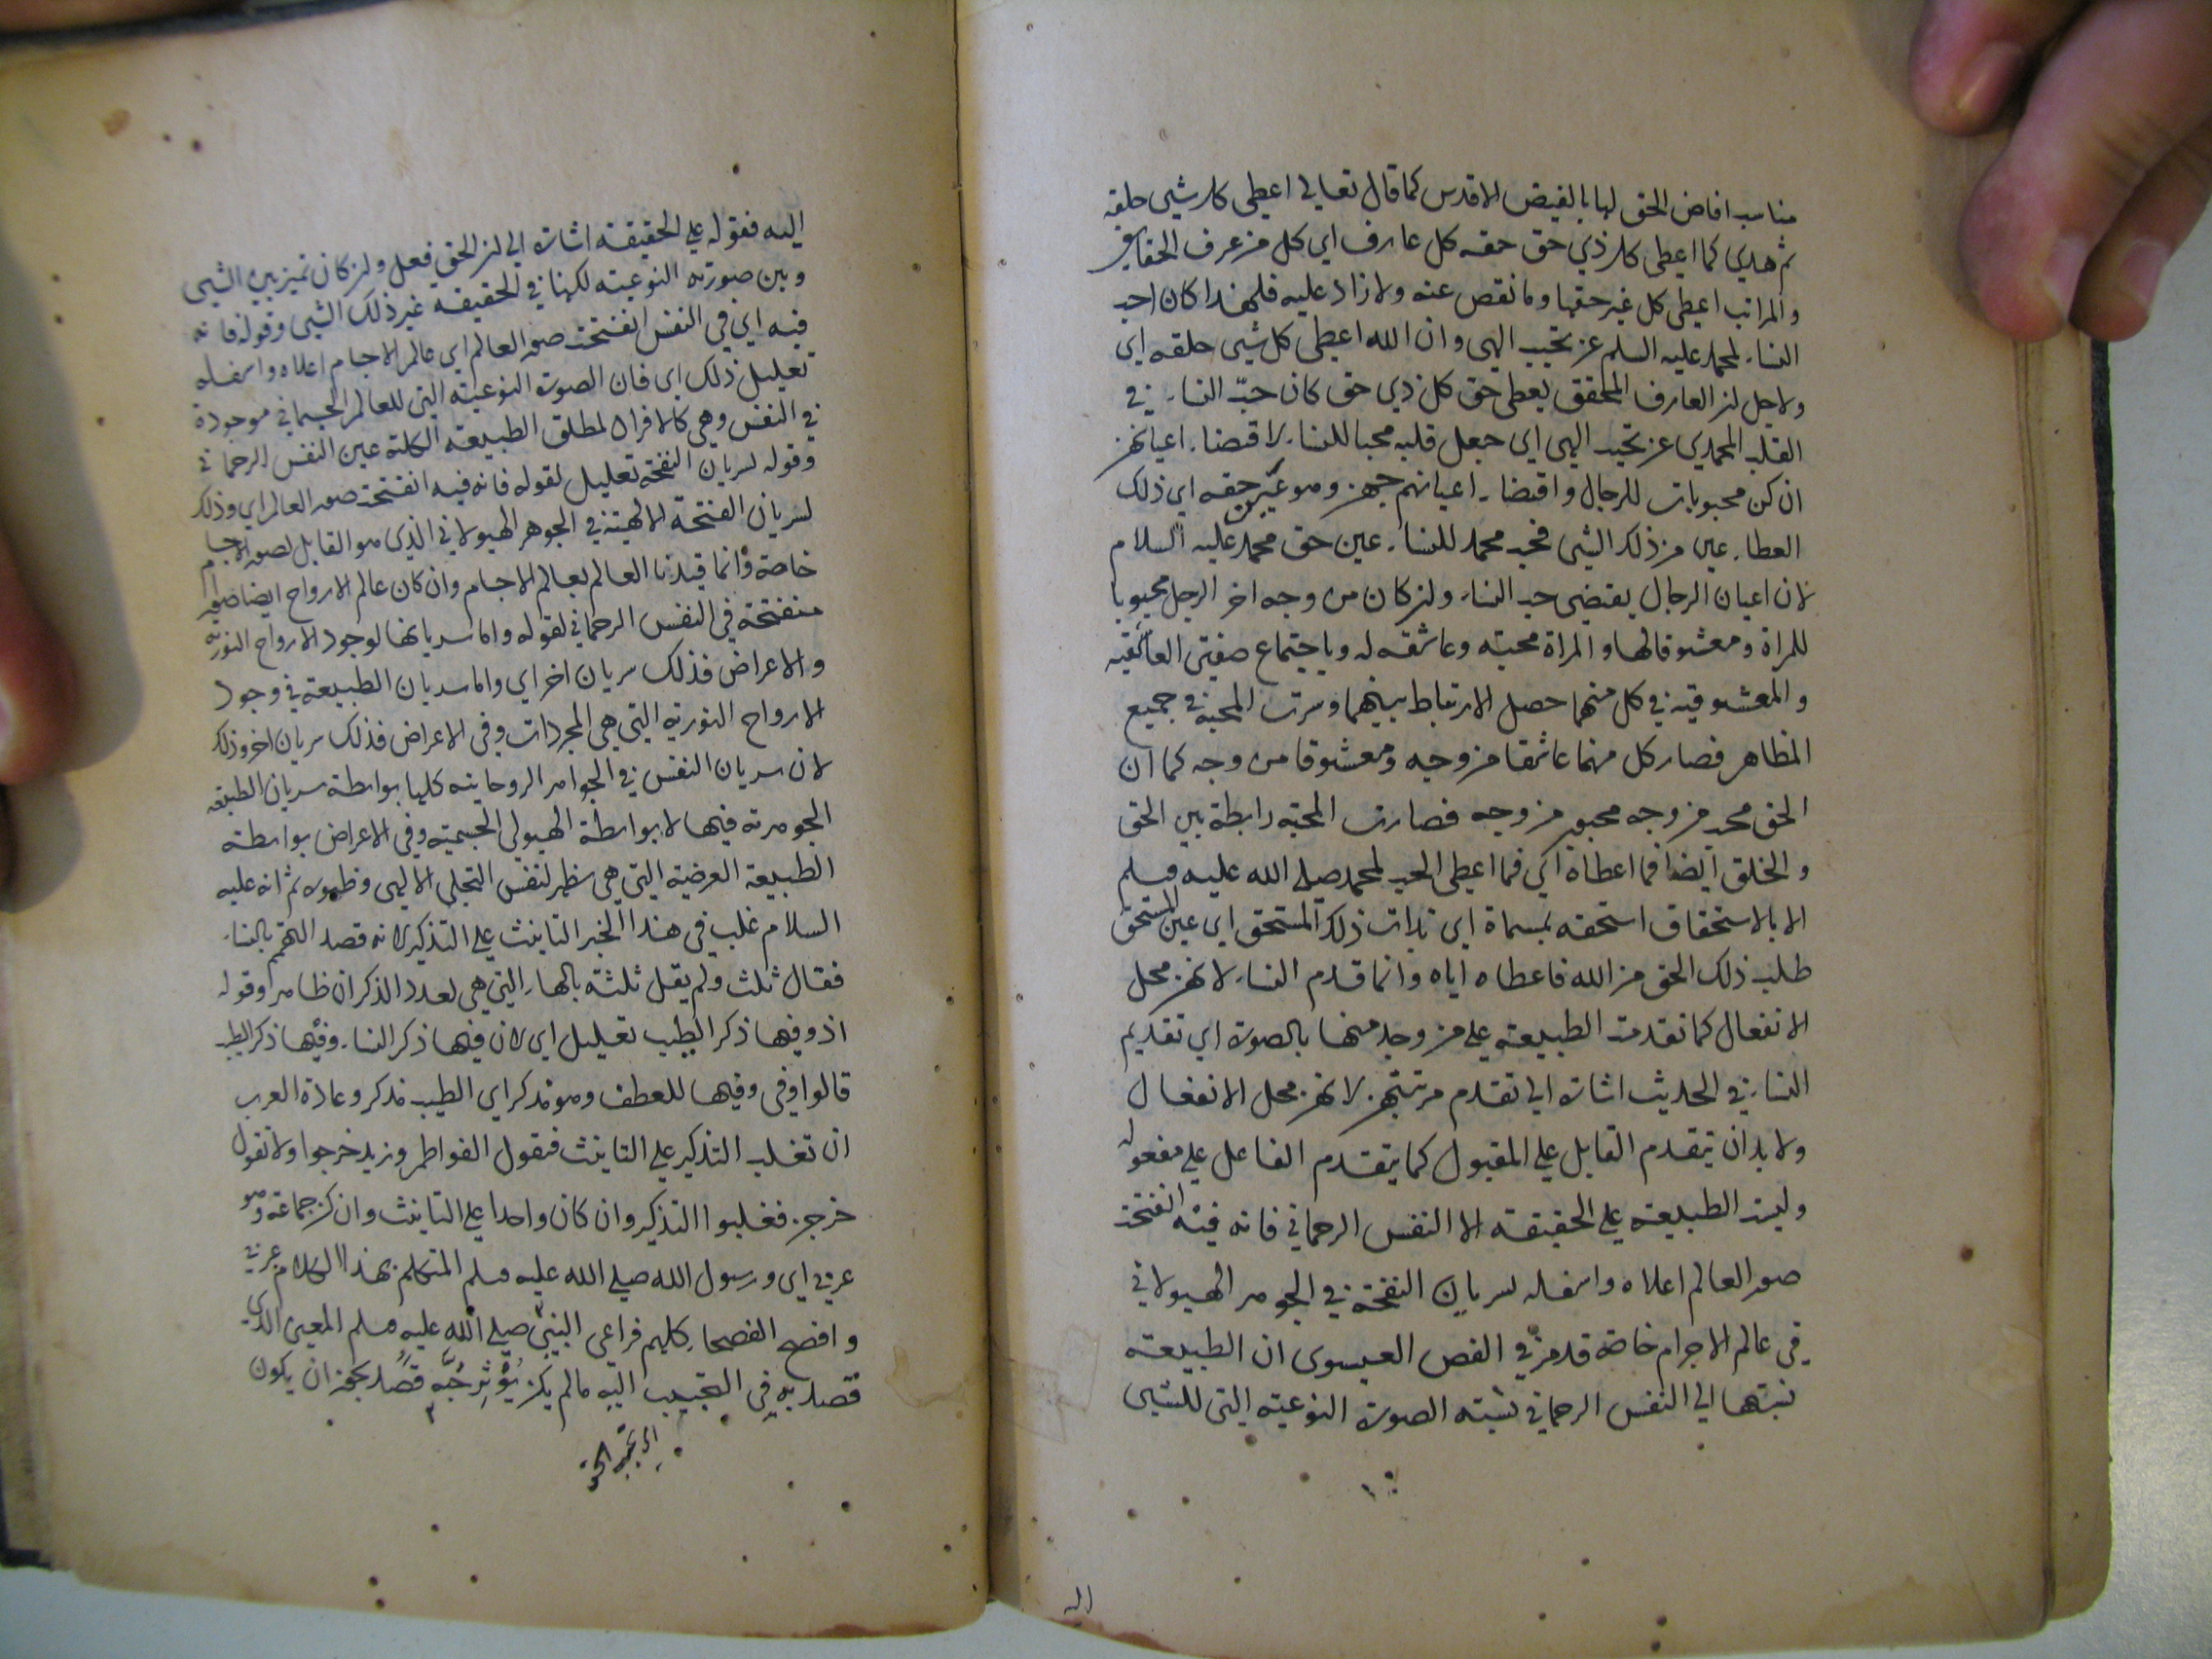 مناسب افاض الحق لها بالفيض الاقدس كما قال تعالى اعطى كل شيى خلقه
ثم هدي كما اعطى كل ذي حق حقه كل عارف اي كل من عرف الحقايق
والمراتب اعطى كل غير حقها وما نقص عنه ولا زاد عليه فلهذا كان احب
النساء لمحمد عليه السلم عن تحبيب الهي وان الله اعطى كل شيى خلقه اي
ولاجل ان العارف المحقق يعطى حق كل ذي حق كان حبّ النساء في
القلب المحمدي عن تحبيب الهي اي جعل قلبه محبا للنساء لاقتضاء اعيانهن
ان كن محبوبات للرجال واقتضاء اعيانهم حبهن وهو عين حقه اي ذلك
العطاء عين من ذلك الشي فحب محمد للنساء عين حق محمد عليه السلام
لان اعيان الرجال يقتضي حب النساء وان كان من وجه اخر الرجل محبوبا
للمراة ومعشوقا لها والمراة محبته وعاشقه له وباجتماع صفتى العاشقيه
والمعشوقيه في كل منهما حصل الارتباط بينهما وسرت المحبة في جميع
المظاهر فصار كل منهما عاشقا من وجه ومعشوقا من وجه كما ان
الحق محب من وجه محبوب من وجه فصارت المحبة رابطة بين الحق
والخلق ايضا فما اعطاه اي فما اعطى الحب لمحمد صلى الله عليه وسلم
الا بالاستحقاق استحقه بمسماة اي بذات ذلك المستحق اي عين المستحق
طلب ذلك الحق من الله فاعطاه اياه وانما قدم النساء لانهن محل
الانفعال كما تقدمت الطبيعة على من وجد منها بالصورة اي تقديم
النساء في الحديث اشارة الى تقدم مرتبتهن لانهن محل الانفعال
ولا بد ان يتقدم القابل على المقبول كما يتقدم الفاعل على مفعوله
وليست الطبيعة على الحقيقه الا النفس الرحماني فانه فيه انفتحت
صور العالم اعلاه واسفله لسريان النفخة في الجوهر الهيولاني
في عالم الاجرام خاصة قد مر في الفص العيسوى ان الطبيعة
نسبتها الى النفس الرحماني نسبته الصورة النوعيه التى للشيى
اليه
اليه فقوله على الحقيقة اشارة الى ان الحق فعل وان كان تميز بين الشيى
وبين صورته النوعيته لكنها في الحقيقه غير ذلك الشيى وقوله فانه
فيه اي في النفس انفتحت صور العالم اي عالم الاجسام اعلاه واسفله
تعليل ذلك اى فان الصورة النوعيته التى للعالم الجسماني موجودة
في النفس وهى كالافراد لمطلق الطبيعة الكلته عين النفس الرحماني
وقوله لسريان النفخة تعليل لقوله فانه فيه انفتحت صور العالم اي وذلك
لسريان النفخة الالهية في الجوهر الهيولاني الذي هو القابل لصور الاجسام
خاصة وانما قيدنا العالم بعالم الاجسام وان كان عالم الارواح ايضا صورا
منفتحة في النفس الرحماني لقوله واما سريانها لوجود الارواح النورية
والاعراض فذلك سريان اخر اي واما سريان الطبيعة في وجود
الارواح النوريه التي هي المجردات وفي الاعراض فذلك سريان اخر وذلك
لان سريان النفس في الجواهر الروحانيه كلها بواسطة سريان الطبيعه
الجوهرته فيها لا بواسطة الهيولى الجسميته وفي الاعراض بواسطته
الطبيعة العرضيه التي هي مظهر لنفس التجلي الالهى وظهوره ثم انه عليه
السلام غلب في هذا الخبر التانيث على التذكير لانه قصد التهمم بالنساء
فقال ثلث ولم يقل ثلثة بالهاء التي هي لعدد الذكران ظاهر وقوله
اذ وفيها ذكر الطيب تعليل اي لان فيها ذكر النساء وفيها ذكر الطيب
قالوا وفى وفيها للعطف وهو مذكر اي الطيب مذكر وعادة العرب
ان تغلب التذكير على التانيث فتقول الفواطم وزيد خرجوا ولا تقول
خرجن فغلبوا التذكير وان كان واحدا على التانيث وان كن جماعة وهو
عربي اي ورسول الله صلى الله عليه وسلم المتكلم بهذا الكلام عربي
وافصح الفصحاء كلهم فراعى النبيّ صلى الله عليه وسلم المعنى الذي
قصد به في التحبيب اليه مالم يكن يُؤثِرُ حُبَّه قصد بحوز ان يكون